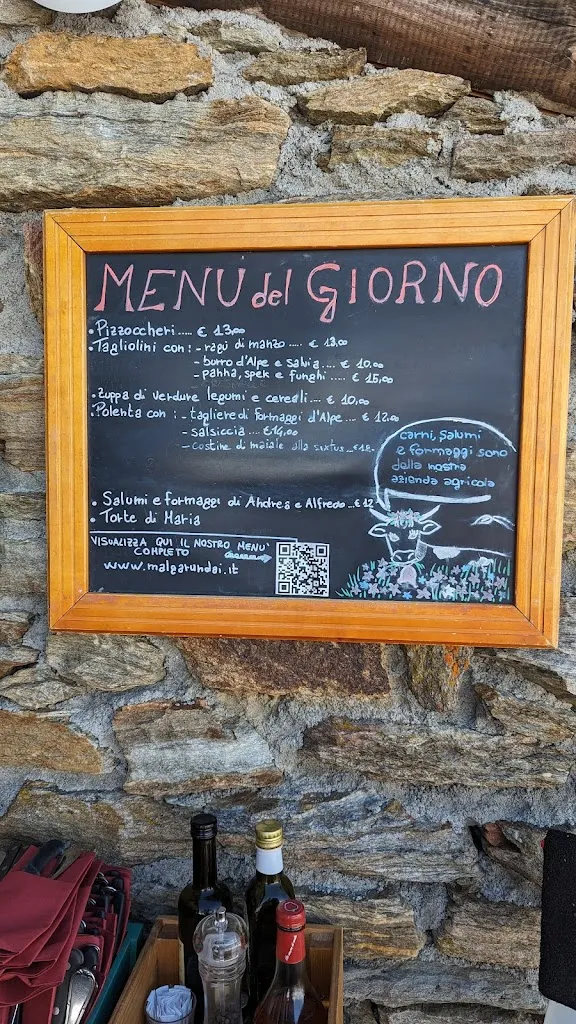 MENU del GIORNO
• Pizzoccheri ..... € 13,00
• Tagliolini con : - ragù di manzo .... € 13,00
- burro d'Alpe e salvia .... € 10.00
- panna, spek e funghi ..... € 15,00
• Zuppa di verdure legumi e cereali .... € 10,00
• Polenta con : - tagliere di formaggi d'Alpe .... € 12.00
- salsiccia .... €14,00
- costine di maiale alla
• Salumi e formaggi di Andrea e Alfredo .. € 12
• Torte di Maria
carni, salumi
e formaggi sono
della nostra
azienda agricola
VISUALIZZA QUI IL NOSTRO MENU'
COMPLETO
www.malgarundai.it